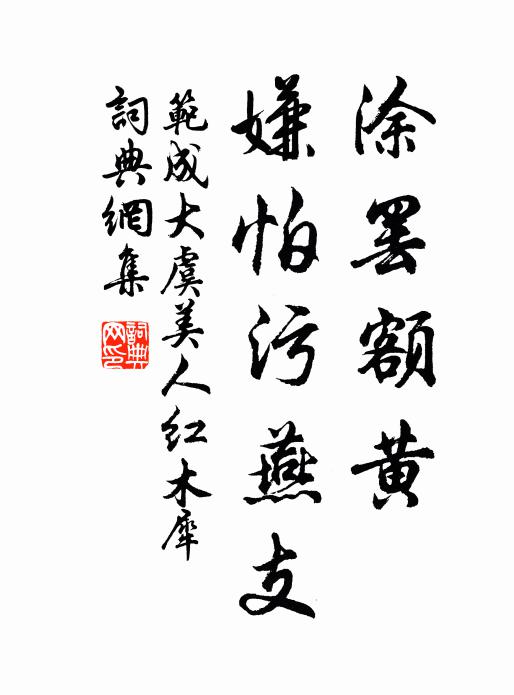 涂罢额黄
嫌怕污燕支
範成大虞美人红木犀
詞典網集
詞典網印